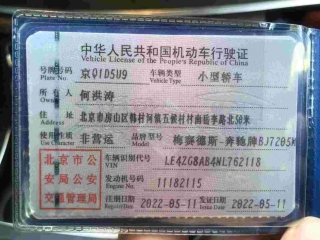 中华人民共和国机动车行驶证
Vehicle License of the People's Republic of China
号牌号码 京Q1D5U9 车辆类型 小型轿车
Plate No. Vehicle Type
所有人 何洪涛
Owner
住址 北京市房山区韩村河镇五侯村村南街李路北50米
Address
使用性质 非营运 品牌型号 梅赛德斯-奔驰牌BJ7205
Use Character Model
北京市公安局公安交通管理局
车辆识别代号 LE4ZG8AB4NL762118
VIN
发动机号码 11182115
Engine No.
注册日期 2022-05-11 发证日期 2022-05-11
Register Date Issue Date